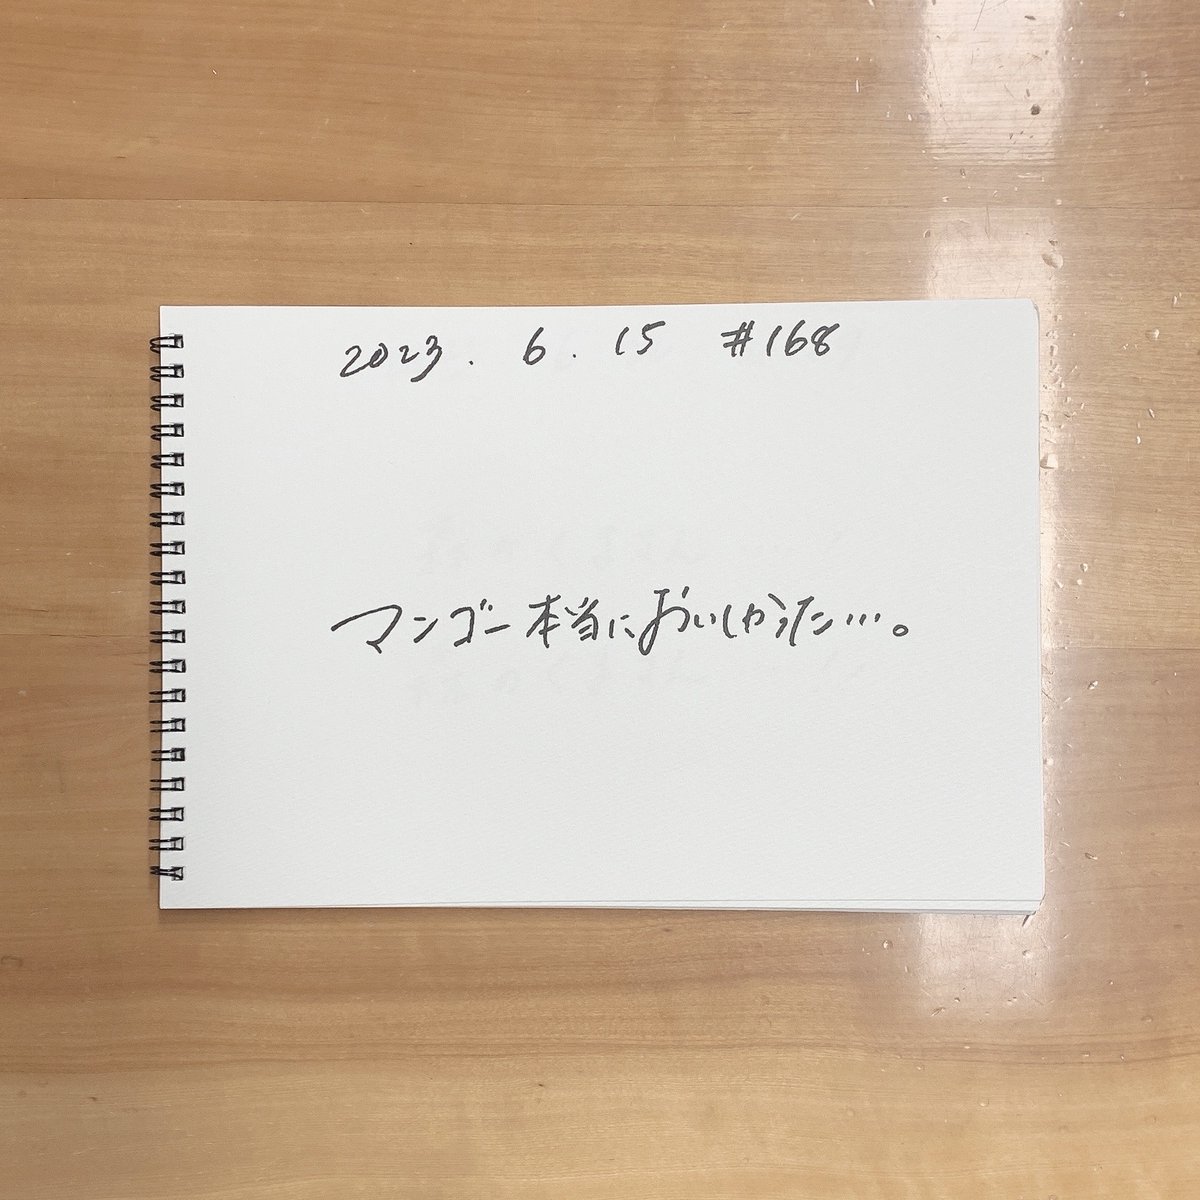 2023. 6. 15 #168
マンゴー本当においしかった…。